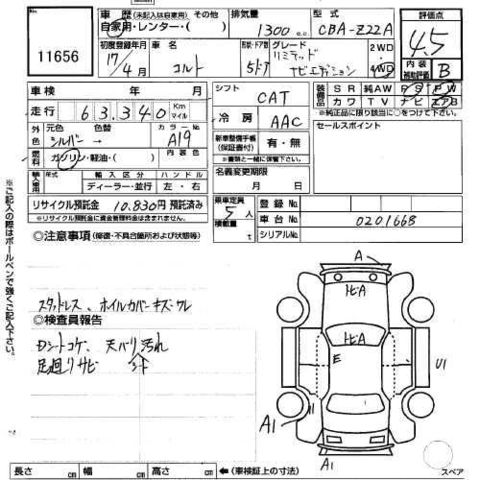 11656
車歴 (未記入は自家用) その他
自家用・レンター・( )
排気量
1300 c.c.
型式
CBA-Z22A
評価点
4.5
初度登録年月
17/4月
車名
コルト
形状・ドア数
5ドア
グレード
リミテッド
ナビエディション
2WD
4WD
内装
補助評価
B
車検 年 月
走行 63,340 Km マイル
シフト
CAT
装備品
SR 純AW PS PW
カワ TV ナビ エアB
※純正品に限り該当に○をつけて下さい。
外色
元色 色替
シルバー →
カラーNo
A19
冷房
AAC
セールスポイント
燃料
ガソリン・軽油・( )
内装色
新車整備手帳
(保証書付)
有・無
※書類と一緒に保管下さい。
輸入車用
年式
輸入区分
ディーラー・並行
ハンドル
左・右
名義変更期限
月 日
リサイクル預託金 10,830円 預託済み
※リサイクル預託金に資金管理料金は含まれません。
乗車定員
5人
積載量
t
登録No.
車台No. 0201668
シリアルNo.
◎注意事項 (修復・不具合箇所および状態等)
スタッドレス、ホイルカバーキズ・ワレ
◎検査員報告
Dシートコゲ、天バリ汚れ
足廻りサビ シート
※ご記入の際はボールペンで強くご記入下さい。
A
トビA
トビA
E
U1
A1
A1
スペア
長さ cm
幅 cm
高さ cm
←(車検証上の寸法)